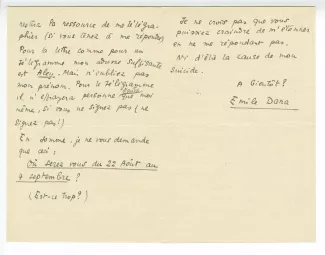 la ressource de me télégra-
phier (si vous tenez à me répondre)
Pour la lettre comme pour un
télégramme mon adresse suffisante
est Mais n'oubliez pas
mon prénom. Pour le télégramme
il n'effraiera personne que moi
même, si vous ne signez pas (ne
signez pas!)
En somme, je ne vous demande
que ceci:
Où serez vous du 22 Août au
4 septembre?
(Est-ce trop?)
Je ne crois pas que vous
puissiez craindre de m'étonner
en ne me répondant pas.
Ni d'être la cause de mon
suicide.
A bientôt?
Emile Dana